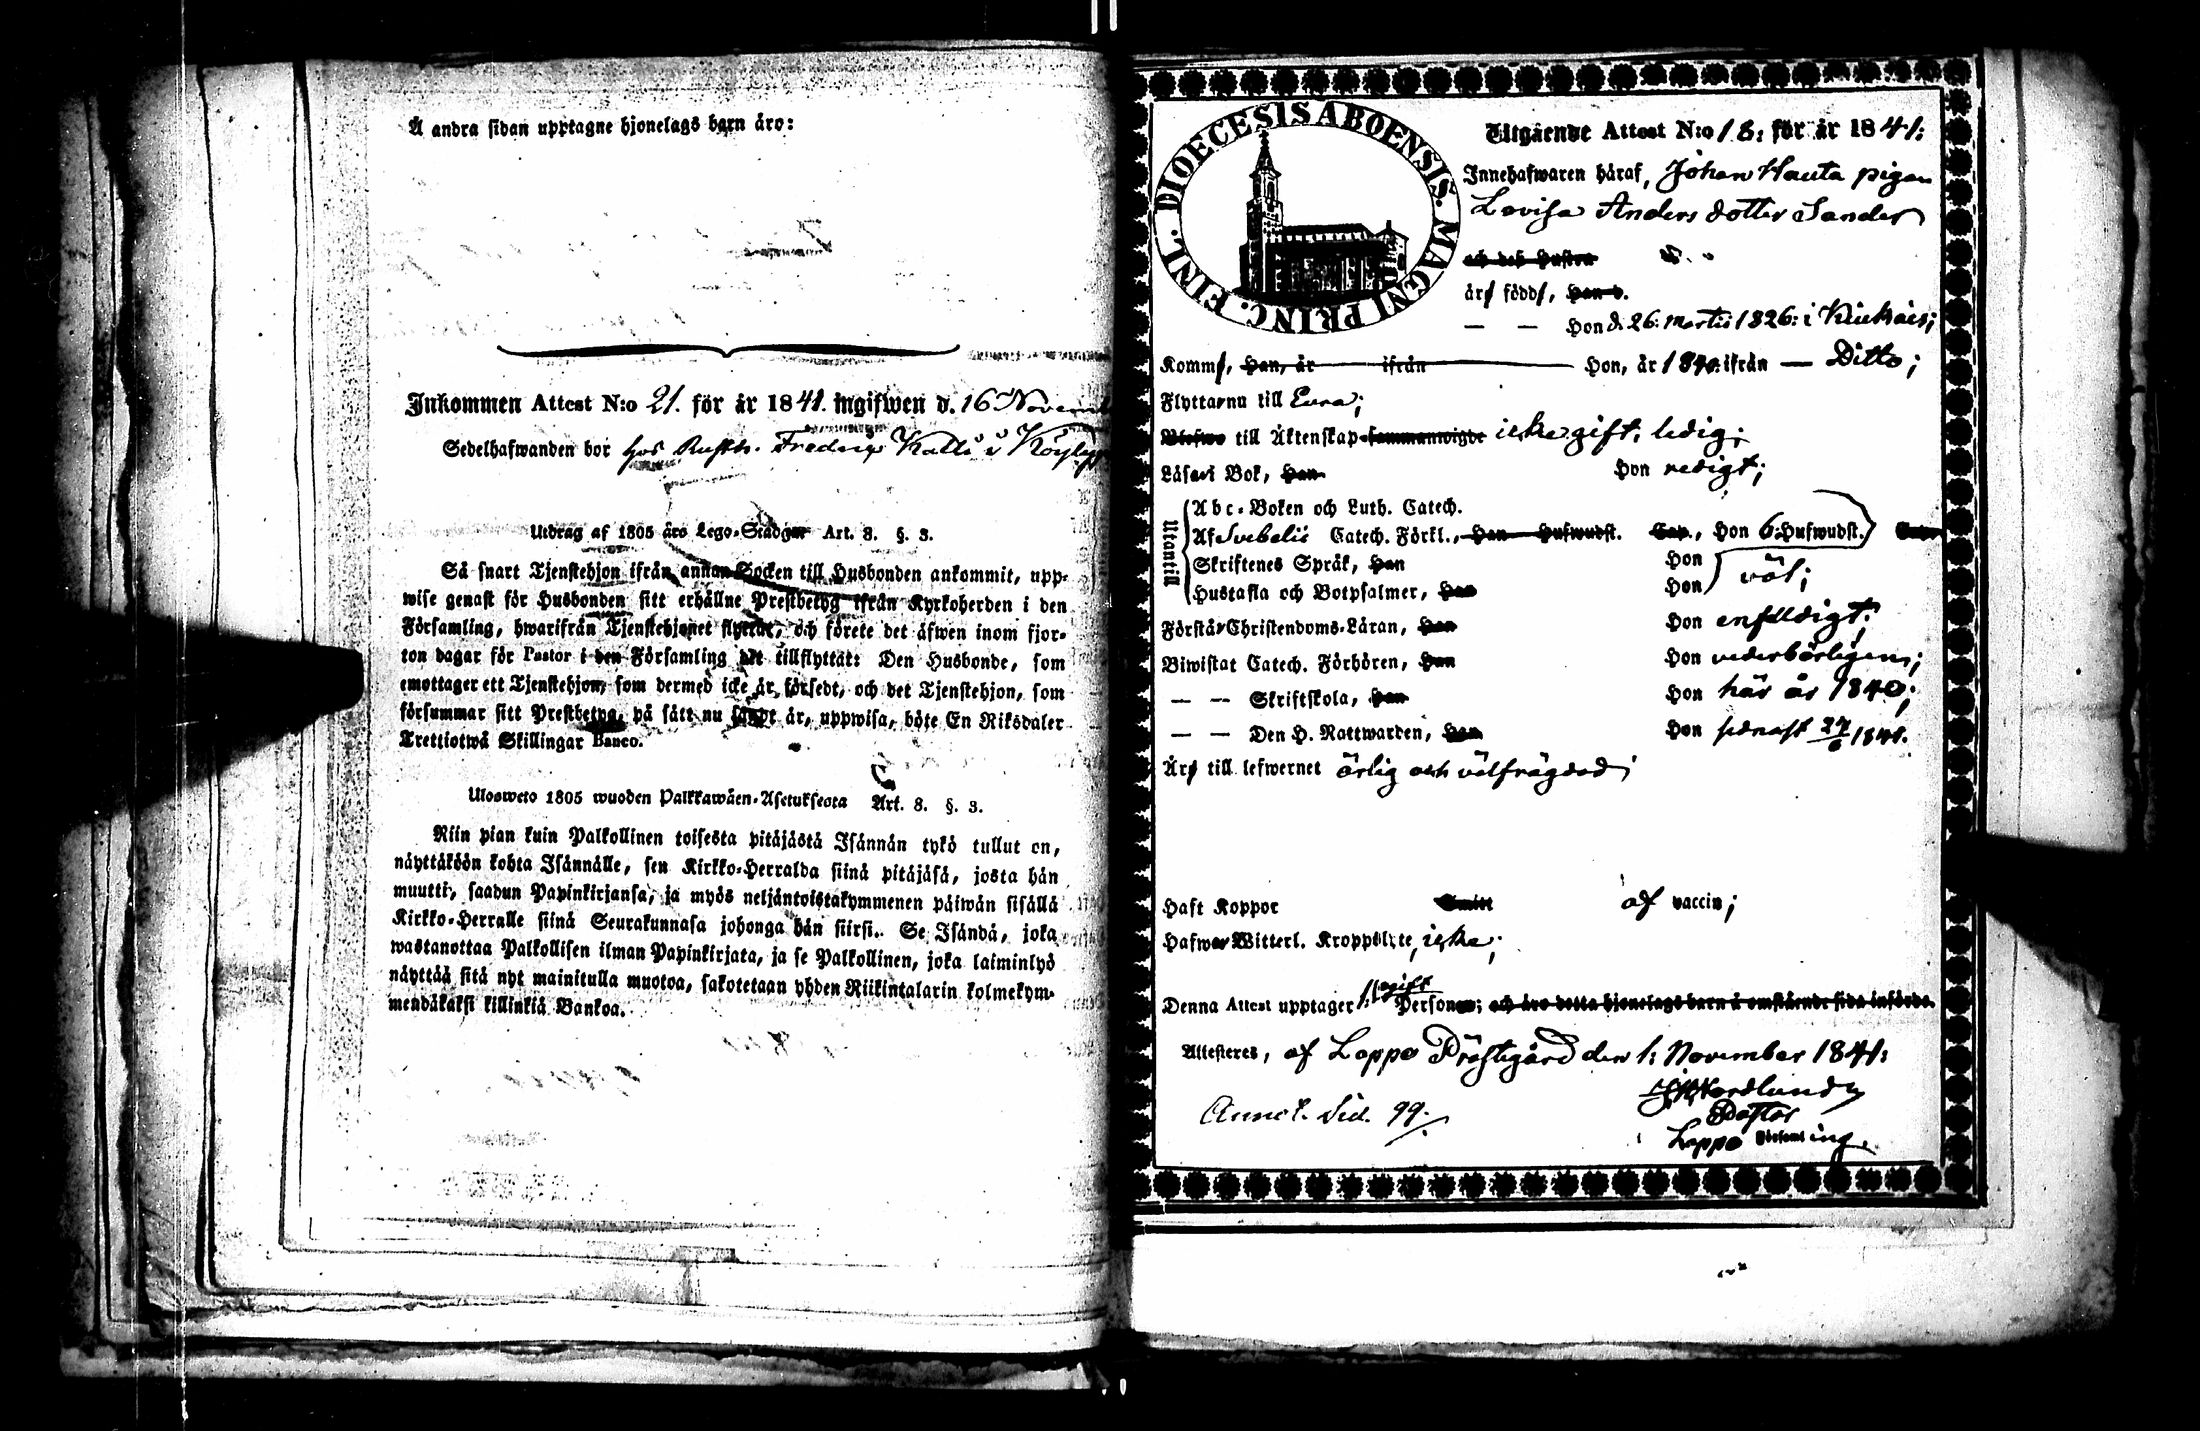 Å andra sidan upptagne hjonelags barn äro:
Inkommen Attest N:o 21. för år 1841. ingifwen d. 16 Novem
Sedelhafwanden bor hos Rusth. Fredrig Kalli i Köyly
Utdrag af 1805 års Lego-Stadgar Art. 8. §. 3.
Så snart Tjenstehjon ifrån annan Socken till Husbonden ankommit, upp-
wise genast för Husbonden sitt erhållne Prestbetyg ifrån Kyrkoherden i den
Församling, hwarifrån Tjenstehjonet flyttat, och förete det äfwen inom fjor-
ton dagar för Pastor i den Församling det tillflyttat: Den Husbonde, som
emottager ett Tjenstehjon, som dermed icke är försedt, och det Tjenstehjon, som
försummar sitt Prestbetyg, på sätt nu sagdt är, uppwisa, böte En Riksdaler
Trettiotwå Skillingar Banco.
Ulosweto 1805 wuoden Palkkawäen-Asetuksesta Art. 8. §. 3.
Niin pian kuin Palkollinen toisesta pitäjästä Isännän tykö tullut on,
näyttäköön kohta Isännälle, sen Kirkko-Herralda siinä pitäjäsä, josta hän
muutti, saadun Papinkirjansa, ja myös neljäntoistakymmenen päiwän sisällä
Kirkko-Herralle siinä Seurakunnasa johonga hän siirsi. Se Isändä, joka
wastanottaa Palkollisen ilman Papinkirjata, ja se Palkollinen, joka laiminlyö
näyttää sitä nyt mainitulla muotoa, sakotetaan yhden Riikintalarin kolmekym-
mendäkaksi killinkiä Bankoa.
DIOECESIS ABOENSIS. MAGNI PRINC. FINL.
Utgående Attest N:o 18: för år 1841:
Innehafwaren häraf, Johan Hauta pigan
Lovisa Anders dotter Sander
och dess Hustru
äro födde, Han d.
— — Hon d. 26: Martii 1826: i Kiukais;
Komme, Han, år ifrån Hon, år 1840. ifrån — Ditto;
Flyttar nu till Eura;
Blefwo till Äktenskap sammanwigde icke gift. ledig;
Läsa i Bok, Han Hon redigt;
Utantill
Abc-Boken och Luth. Catech.
Af Svebelii Catech. Förkl., Han Hufwudst. Cap., Hon 6: Hufwudst.
Skriftenes Språk, Han Hon
väl;
Hustafla och Botpsalmer, Han Hon
Förstår Christendoms-Läran, Han Hon enfaldigt;
Biwistat Catech. Förhören, Han Hon vederbörligen;
— — Skriftskola, Han Hon här år 1840;
— — Den H. Nattwarden, Han Hon sednast 27/6 1841.
Äro till lefwernet ärlig och välfrägdad;
Haft Koppor af vaccin;
Hafwa Witterl. Kroppslyte, icke;
Denna Attest upptager 1: ogift Person; och äro detta hjonelags barn å omstående sida införde.
Attesteres, af Lappo Prästegård den 1: November 1841:
Nordlund
Pastor
Lappo Församling.
Annot. Sid. 99.